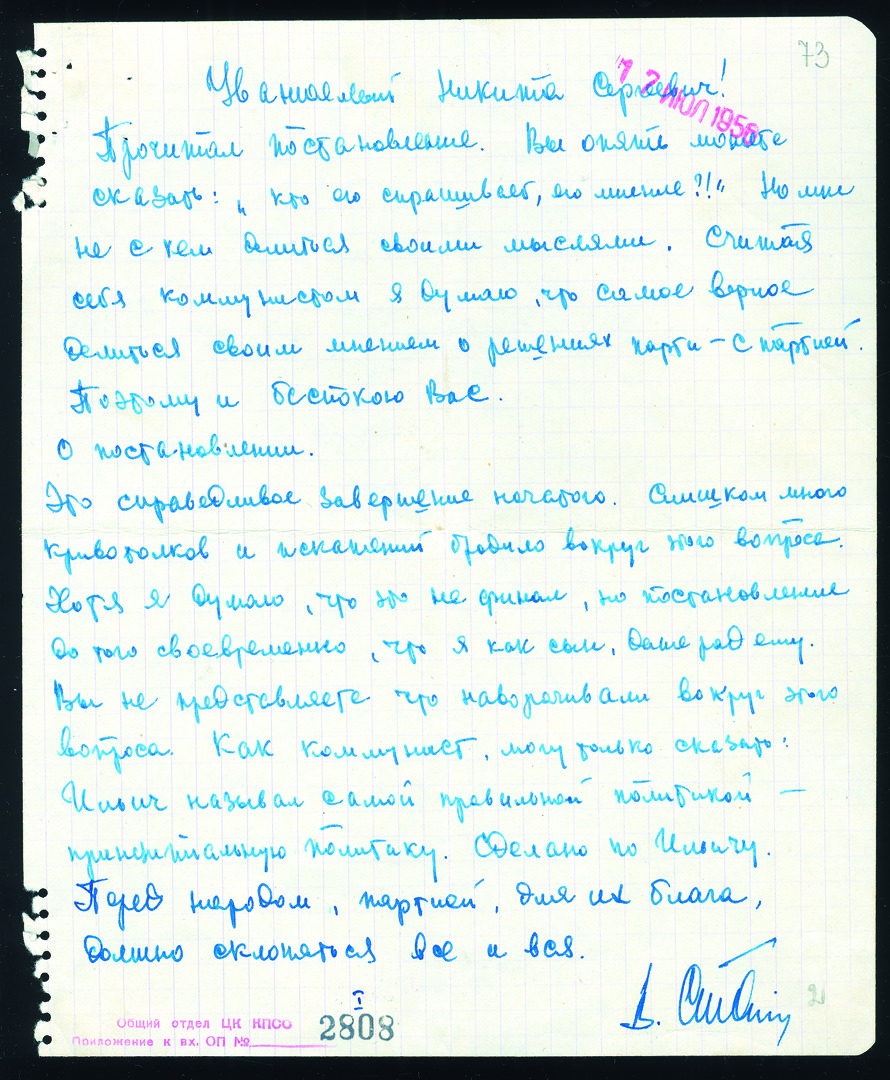 73
12 ИЮЛ 1956
Уважаемый Никита Сергеевич!
Прочитал постановление. Вы опять можете
сказать: „кто его спрашивает, его мнение?!!" Но мне
не с кем делиться своими мыслями. Считая
себя коммунистом я думаю, что самое верное
делиться своим мнением о решениях парти – с партией.
Поэтому и беспокою Вас.
О постановлении.
Это справедливое завершение начатого. Слишком много
кривотолков и искажений бродило вокруг этого вопроса.
Хотя я думаю, что это не финал, но постановление
до того своевременно, что я как сын, даже рад ему.
Вы не представляете что наворачивали вокруг этого
вопроса. Как коммунист, могу только сказать:
Ильич называл самой правильной политикой –
принципиальную политику. Сделано по Ильичу.
Перед народом, партией, для их блага,
должно склоняться все и вся.
В. Сталин
I
Общий отдел ЦК КПСС 2808
Приложение к вх. ОП №